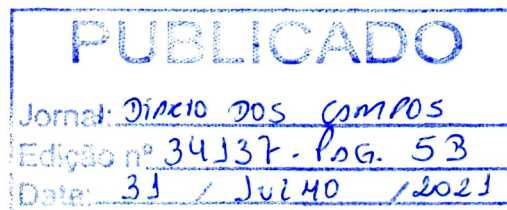 PUBLICADO
Jornal: DIÁRIO DOS CAMPOS
Edição nº 34137 - PAG. 5B
Data: 31 / JULHO / 2021